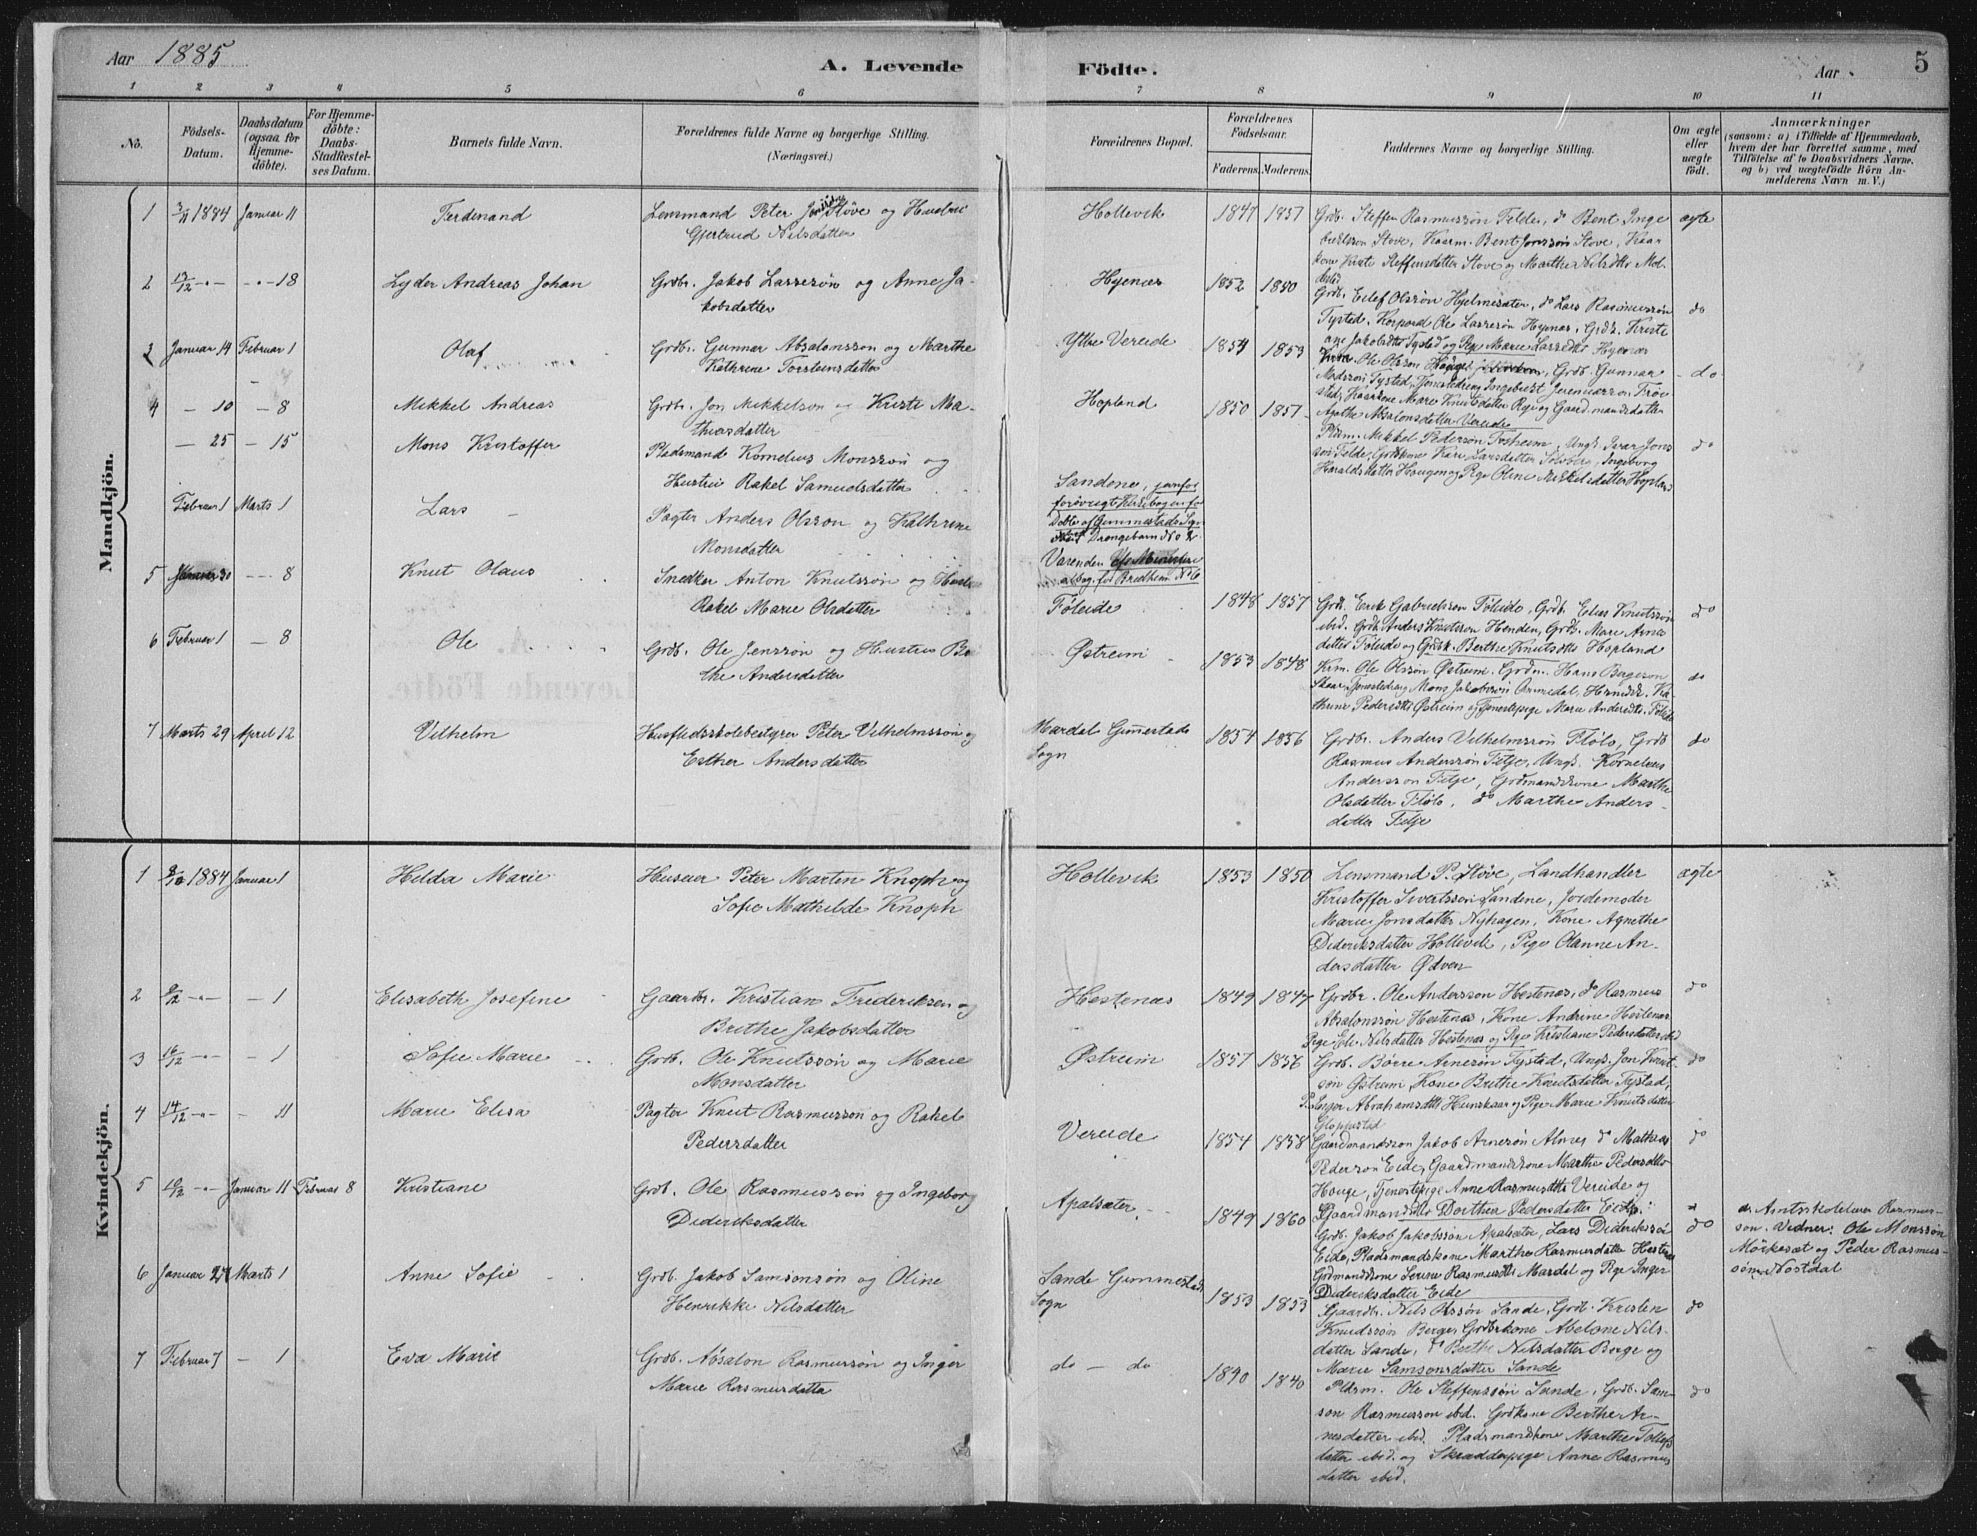 Aar 1885
A. Levende Födte.
Aar
5
1 2 3 4 5 6 7 8 9 10 11
No.
Födsels-
Datum.
Daabsdatum
(ogsaa for
Hjemme-
döbte).
For Hjemme-
döbte:
Daabs-
Stadfæstel-
ses Datum.
Barnets fulde Navn.
Forældrenes fulde Navne og borgerlige Stilling.
(Næringsvei.)
Forældrenes Bopæl.
Forældrenes
Födselsaar.
Faderens. Moderens.
Faddernes Navne og borgerlige Stilling.
Om ægte
eller
uægte
födt.
Anmærkninger
(saasom: a) i Tilfælde af Hjemmedaab,
hvem der har forrettet samme, med
Tilföielse af to Daabsvidners Navne,
og b) ved uægtefödte Börn An-
melderens Navn m. V.)
Mandkjön.
1 3/11 1884 Januar 11 Ferdinand Lensmand Peter Støve og Hustru
Gjertrud Nilsdatter
Hollevik 1847 1857 Grdb. Steffen Rasmussøn Felde, do Bent Inge
brethssøn Støve, Kaarm. Bent Jonssøn Støve, Kaar
kone Kirsti Steffensdatter Støve og Marthe Nilsdtr Mol-
stad
ægte
2 13/12 -"- -"- 18 Lyder Andreas Johan Grdbr. Jakob Lassesøn og Anne Ja-
kobsdatter
Hyenæs 1852 1850 Grdb. Eilef Olssøn Hjelmesæter, do Lars Rasmussøn
Tystad, Korporal Ole Lassesøn Hyenæs, Grdk. Kristi
ane Jakobsdtr Tystad og Pige Marie Lassedtr Hyenæs
do
3 Januar 14 Februar 1 Olaf Grdb. Gunnar Absalonssøn og Marthe
Kathrine Torsteinsdatter
Ytre Vereide 1854 1853 Ole Olsson Hauge, Grdb. Gunnar
Madssøn Tystad, Tjenestedreng Ingebrigt
Kaardkone Mari Knutsdatter og Gaardmandsdatter
Agathe Absalonsdatter Vereide
- do
4 - 10 - 8 Mikkel Andreas Grdbr. Jon Mikkelson og Kristi Ma-
thiasdatter
Hopland 1850 1857 Pladsm. Mikkel Pedersøn Fosheim, Ungk. Ivar Jons
søn Felde, Grdbkone Kari Larsdatter Solberg, Ingeborg
Haraldsdatter Hougen og Pige Oline Mikkelsdatter Hopland
do
- 25 - 15 Mons Kristoffer Pladsmand Kornelius Monssøn og
Hustru Rakel Samuelsdatter
Sandene, jevnfør
forøvrigt Kirkebogen for
Døbte af Gimmestads Sogn
Drengebarn No 2
Februar 1 Marts 1 Lars Pagter Anders Olsson og Kathrine
Monsdatter
Vareiden
bog for Bredheim No 6
5 Januar 30 -"- 8 Knut Olaus Snedker Anton Knutssøn og Hustru
Rakel Marie Olsdatter
Føleide 1848 1857 Grdb. Erik Gabrielsøn Føleide, Grdb. Elias Knutssøn
ibid. Grdb. Anders Knutsson Henden, Grdk. Mari Arne
datter Føleide og Grdbk. Berthe Knutsdtr Hopland
do
6 Februar 1 - 8 Ole Grdb. Ole Jenssøn og Hustru Be
the Andersdatter
Østreim 1853 1848 Krm. Ole Olssøn Østreim, Grdm. Hans Bøgeson
Skaar, Tjenestedreng Mons Jakobsøn Ommedal, Ka
thrine Pedersdtr Østreim og Tjenestepige Marie Andersdtr. Føleide
do
7 Marts 29 April 12 Vilhelm Husflidsskolebestyrer Peter Vilhelmssøn og
Esther Andersdatter
Mardal Gimmestads
Sogn
1854 1856 Grdbr. Anders Vilhelmssøn Fløló, Grdb
Rasmus Anderssøn Felje, Ungk. Kornelius
Andersson Felje, Grdmandskone Marthe
Olsdatter Fløló, do Marthe Anders-
datter Felje
do
Kvindekjön.
1 8/10 1884 Januar 1 Hilda Marie Huseier Peter Martin Knoph og
Sofie Mathilde Knoph
Hollevik 1853 1850 Lensmand P. Støve, Landhandler
Kristoffer Sivertssøn Sandene, Jordemoder
Marie Jonsdatter Nyhagen, Kone Agnethe
Dideriksdatter Hollevik, Pige Olanne An-
dersdatter Ødven
ægte
2 9/12 -"- - 1 Elisabeth Josefine Gaardbr. Kristian Frederiksen og
Brithe Jakobsdatter
Hestenæs 1849 1847 Grdbr. Ole Andersson Hestenæs, do Rasmus
Absalonssøn Hestenæs, Kone Andrine Hestenæs
Pige Eli Nilsdatter Hestenæs og Pige Kristiane Pedersdatter ibid
do
3 16/12 -"- - 1 Sofie Marie Grdb. Ole Knutssøn og Marie
Monsdatter
Østreim 1857 1856 Grdb. Børre Arnesøn Tystad, Ungk. Jon Knut-
søn Østreim, Kone Brithe Knutsdatter Tystad,
P. Inger Abrahamsdtr Hunskaar og Pige Marie Knutsdatter
Gloppestad
do
4 14/12 -"- - 11 Marie Elisa Pagter Knut Rasmusson og Rakel
Pedersdatter
Vereide 1854 1858 Gaardmandssøn Jakob Arnesøn Alnes, do Mathias
Pederson Eide, Gaardmandskone Marthe Pedersdtr
Houge, Tjenestepige Anne Rasmusdtr Vereide og
Gaardmandsdtr Dorthea Pedersdatter Eide
do
5 10/12 -"- Januar 11 Februar 8 Kristiane Grdb. Ole Rasmussøn og Ingeborg
Dideriksdatter
Apalsæter 1849 1860 Grdb. Jakob Jakobssøn Apalsæter, Lars Diderikssøn
Eide, Pladsmandskone Marthe Rasmusdatter Hestenæs
Grdmandskone Serine Rasmusdtr Mardal og Pige Inger
Dideriksdatter Eide
do
a. Amtsskolelærer Rasmus-
son. Vidner: Ole Monssøn
Mørkesæt og Peder Rasmus-
søn Nostdal
6 Januar 27 Marts 1 Anne Sofie Grdb. Jakob Samsonsøn og Oline
Henrikke Nilsdatter
Sande Gimmestad
Sogn
1853 1853 Gaardbr. Nils Olssøn Sande, Grdb. Kristen
Knudssøn Berge, Grdbrkone Abelone Nils-
datter Sande, do Berthe Nilsdatter Berge og
Marie Samsonsdatter Sande
do
7 Februar 7 - 1 Eva Marie Grdb. Absalon Rasmussøn og Inger
Marie Rasmusdatter
do - do 1840 1840 Pladsm. Ole Steffenssøn Sande, Grdb. Sam-
son Rasmusson ibid. Grdkone Berthe Ar-
nesdatter ibid. Pladsmandkone Marthe Tollefs
datter ibid. og Skrædderpige Anne Rasmus
datter ibid.
do